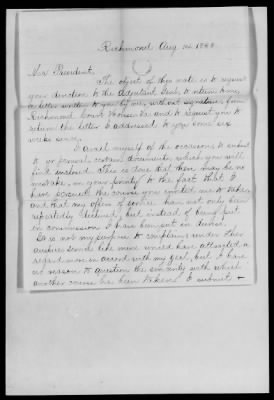 Richmond Aug 14 1863
Mr President,
The object of this note is to request
your direction to the Adjutant Genl. to return to me
a letter written to you by me, without signature, from
Richmond Court House Va. and to request you to
return the letter I addressed to you some six
weeks since.
I avail myself of the occasion to submit
to yr perusal certain documents, which you will
find enclosed. This is done that there may be no
mistake, on your part, as to the fact that I
have pursued the course you invited me to take,
and that my offers of service have not only been
repeatedly declined, but instead of being put
in commission I have been set in
It is not my purpose to complain, under other
auspices some like mine would have attracted a
regard more in accord with my zeal, but I have
no reason to question the sincerity with which
another course has been taken. I submit &